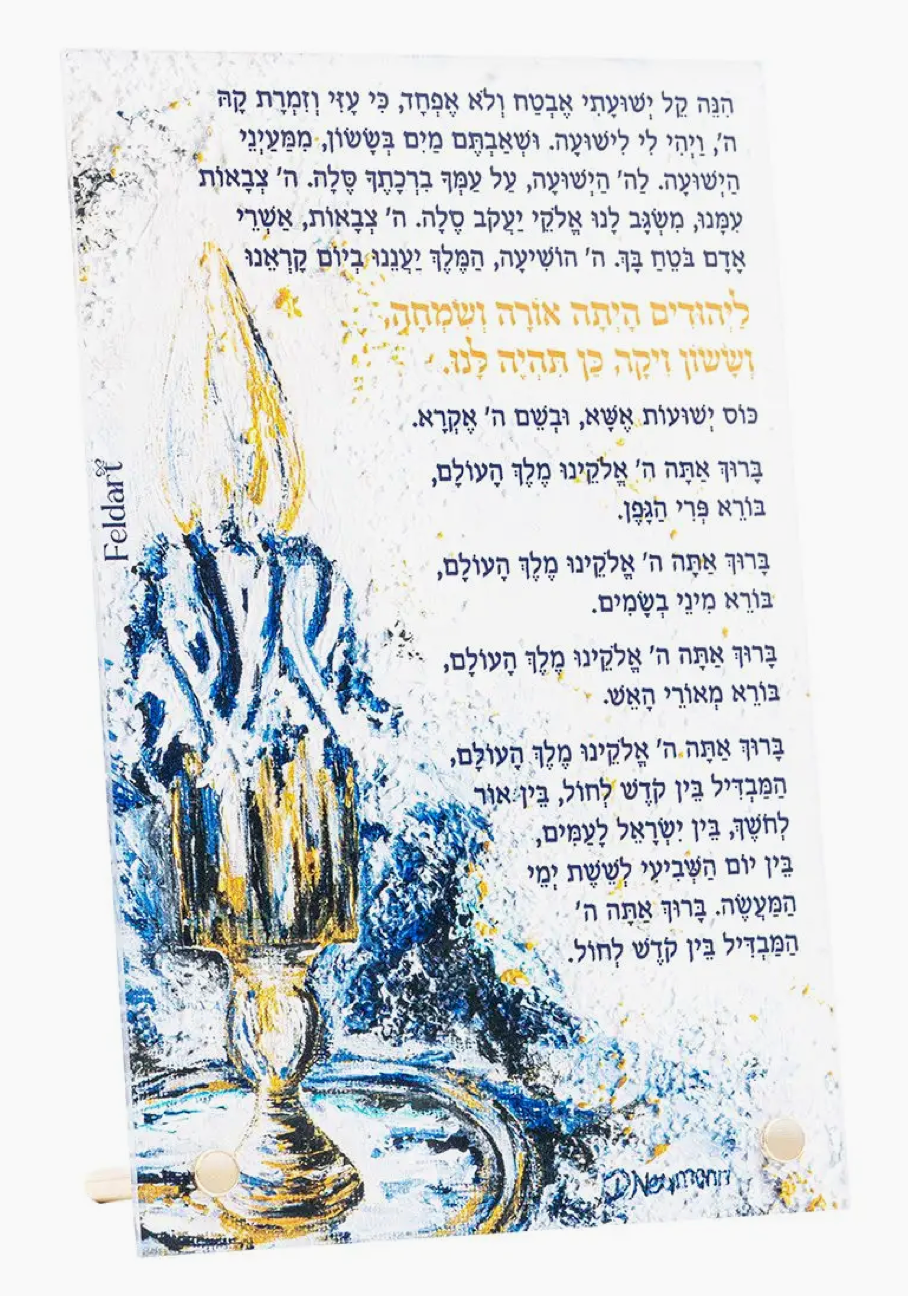 הִנֵּה קֵל יְשׁוּעָתִי אֶבְטַח וְלֹא אֶפְחָד, כִּי עָזִּי וְזִמְרָת קָהּ
ה', וַיְהִי לִי לִישׁוּעָה. וּשְׁאַבְתֶּם מַיִם בְּשָׂשׂוֹן, מִמַּעַיְנֵי
הַיְשׁוּעָה. לַה' הַיְשׁוּעָה, עַל עַמְּךָ בִרְכָתֶךָ סֶּלָה. ה' צְבָאוֹת
עִמָּנוּ, מִשְׂגָּב לָנוּ אֱלֹקֵי יַעֲקֹב סֶלָה. ה' צְבָאוֹת, אַשְׁרֵי
אָדָם בֹּטֵחַ בָּךְ. ה' הוֹשִׁיעָה, הַמֶּלֶךְ יַעֲנֵנוּ בְיוֹם קָרְאֵנוּ
לַיְהוּדִים הָיְתָה אוֹרָה וְשִׂמְחָה,
וְשָׂשׂוֹן וִיקָר, כֵּן תִּהְיֶה לָּנוּ.
כּוֹס יְשׁוּעוֹת אֶשָּׂא, וּבְשֵׁם ה' אֶקְרָא.
בָּרוּךְ אַתָּה ה' אֱלֹקֵינוּ מֶלֶךְ הָעוֹלָם,
בּוֹרֵא פְּרִי הַגָּפֶן.
בָּרוּךְ אַתָּה ה' אֱלֹקֵינוּ מֶלֶךְ הָעוֹלָם,
בּוֹרֵא מִינֵי בְשָׂמִים.
בָּרוּךְ אַתָּה ה' אֱלֹקֵינוּ מֶלֶךְ הָעוֹלָם,
בּוֹרֵא מְאוֹרֵי הָאֵשׁ.
בָּרוּךְ אַתָּה ה' אֱלֹקֵינוּ מֶלֶךְ הָעוֹלָם,
הַמַּבְדִּיל בֵּין קֹדֶשׁ לְחוֹל, בֵּין אוֹר
לְחֹשֶׁךְ, בֵּין יִשְׂרָאֵל לָעַמִּים,
בֵּין יוֹם הַשְּׁבִיעִי לְשֵׁשֶׁת יְמֵי
הַמַּעֲשֶׂה. בָּרוּךְ אַתָּה ה'
הַמַּבְדִּיל בֵּין קֹדֶשׁ לְחוֹל.
Feldart
DNeymann